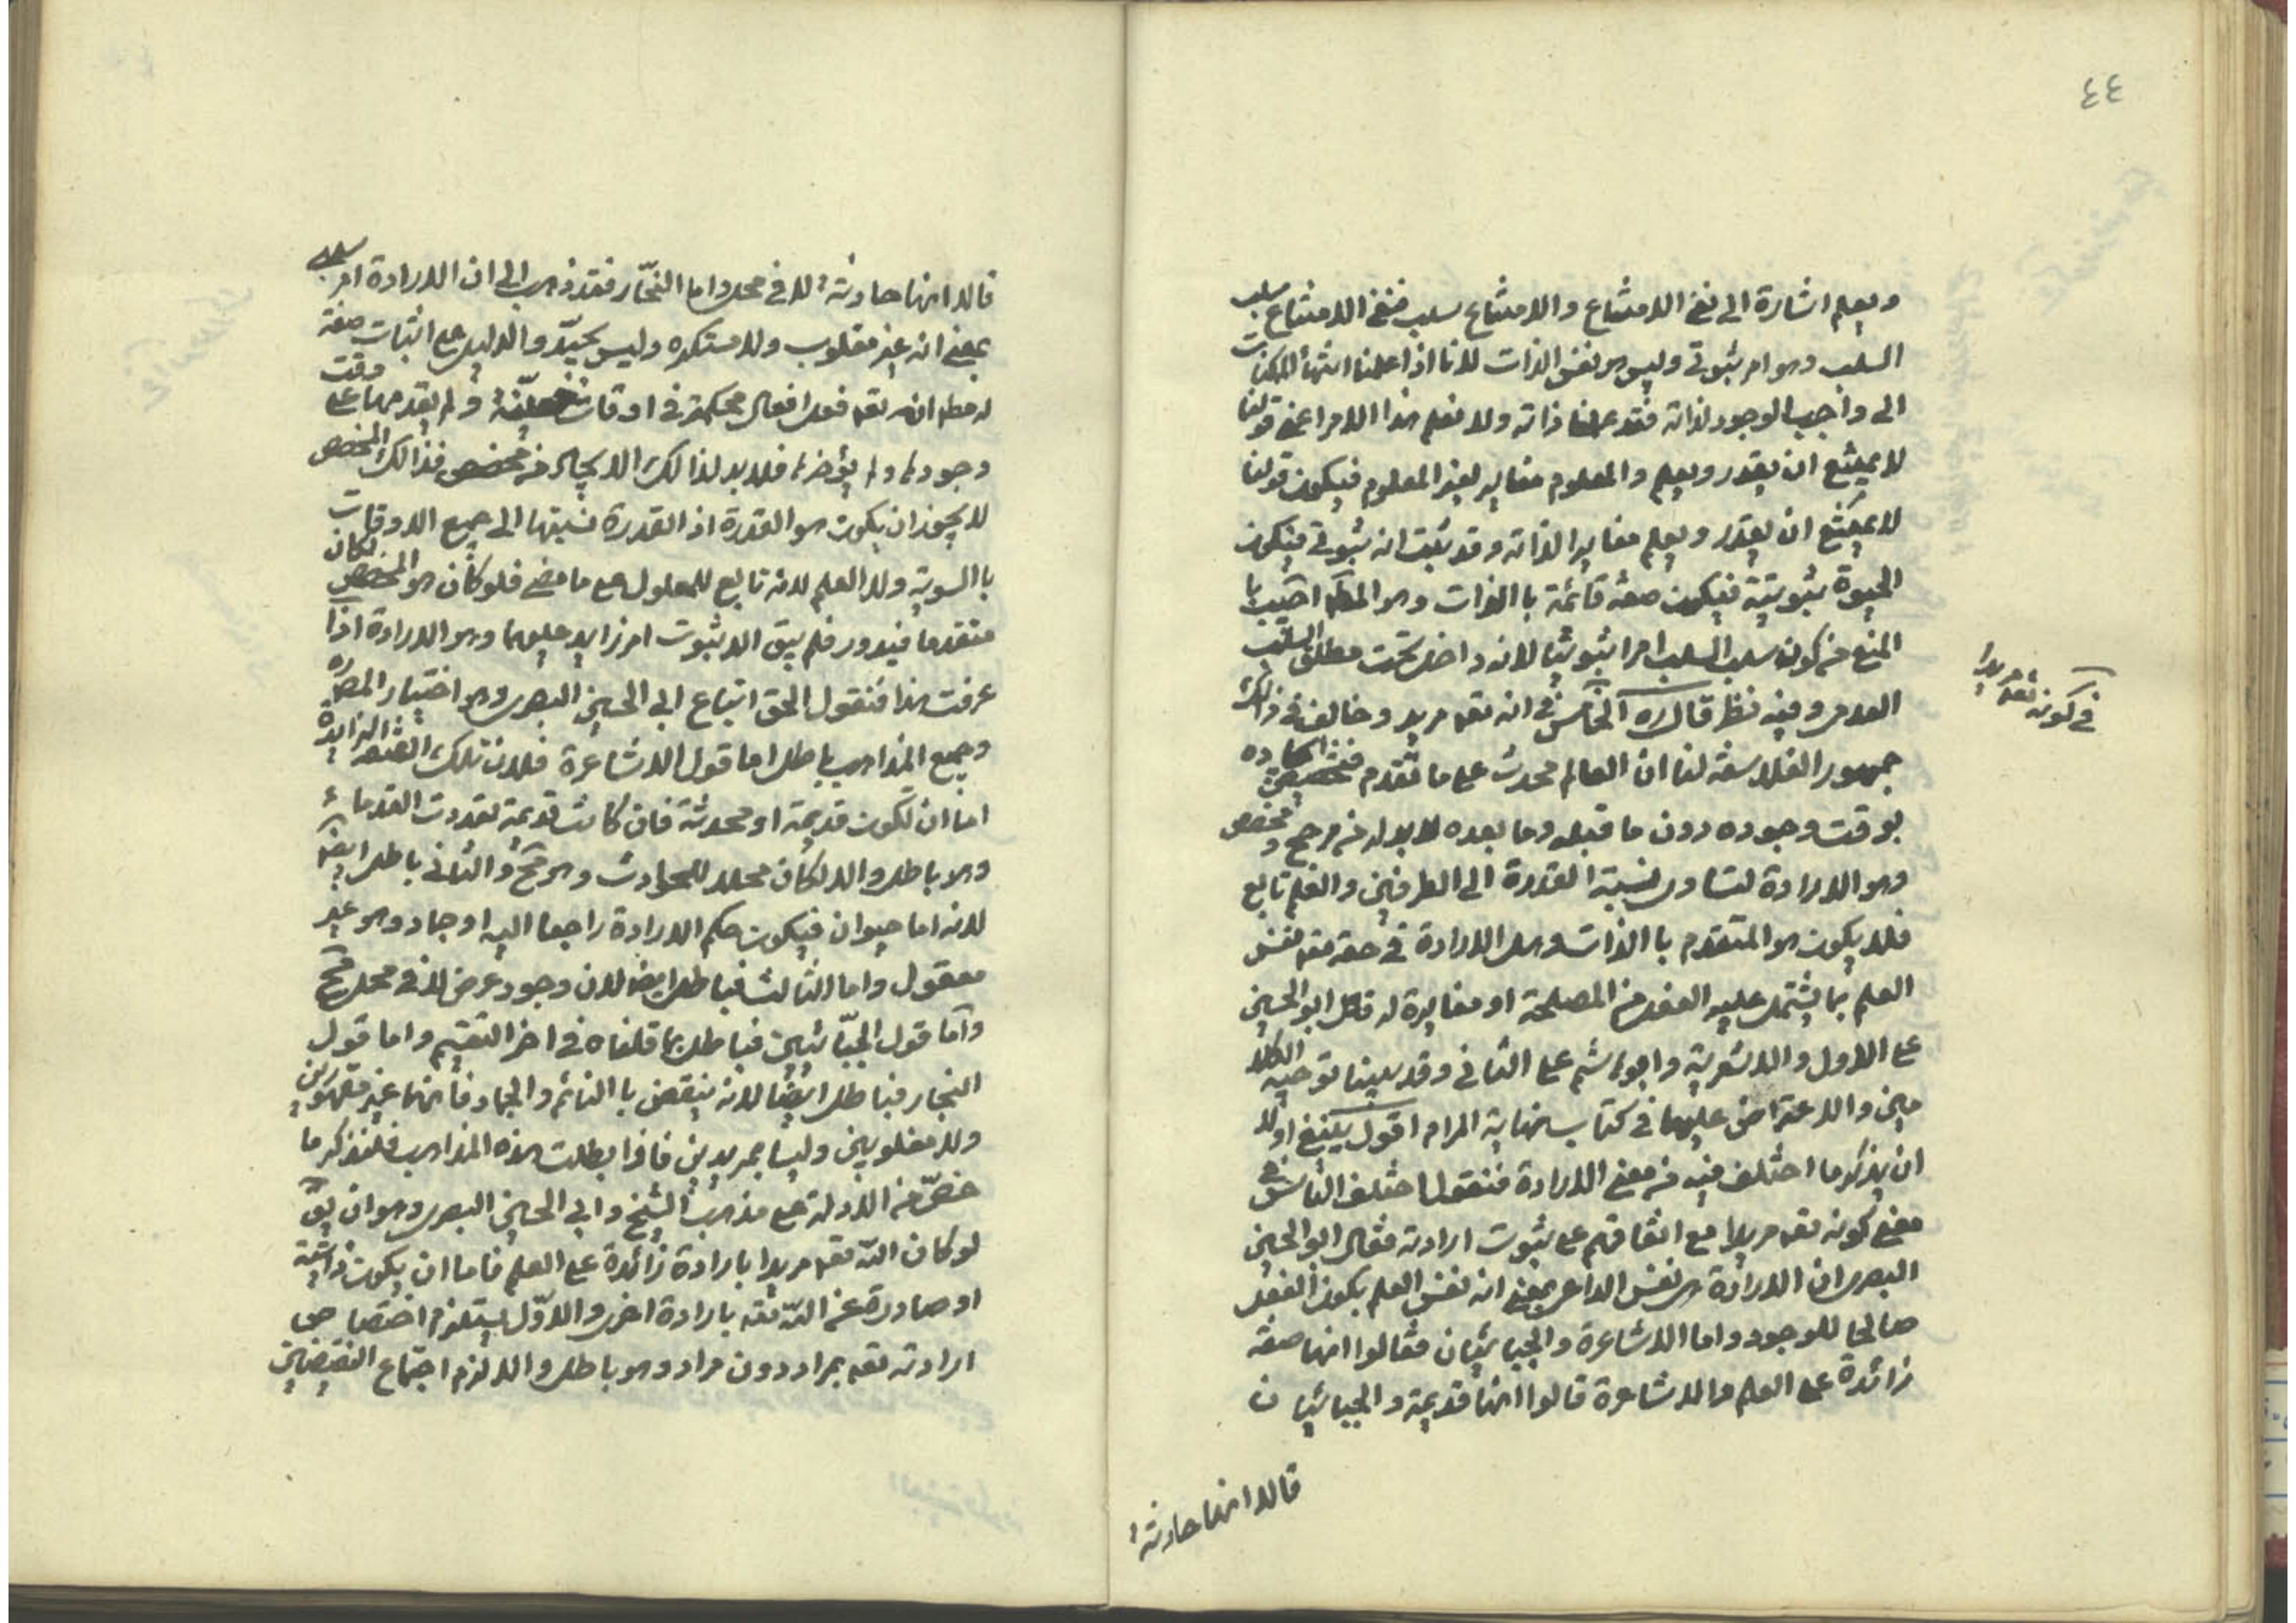 ٤٤
ويعلم اشارة الى نفى الامتناع والامتناع سلب فنفى الامتناع سلب
السلب وهو امر ثبوتى وليس هو نفس الذات لانا اذا علمنا انتهأ الممكنات
الى واجب الوجود لذاته فقد علمنا ذاته ولا نعلم هذا الامر اعنى قولنا
لا يمتنع ان يقدر ويعلم والمعلوم مغاير لغير المعلوم فيكون قولنا
لا يمتنع ان يقدر ويعلم مغايرا لذاته وقد ثبت انه ثبوتى فيكون
الحيوة ثبوتية فيكون صفة قائمة باالذات وهو المط اجيب با
المنع من كون سلب السلب امرا ثبوتيا لانه داخل تحت مطلق السلب
العدمى وفيه نظر قال ره الخامس فى انه تعه مريد وخالف فى ذالك
فى كونه تعه مريدا
جمهور الفلاسفة لنا ان العالم محدث على ما تقدم فتخصيص ايجاده
بوقت وجوده دون ما قبله وما بعده لابد له من مرجح ومخصص
وهو الارادة لتساوى نسبة القدرة الى الطرفين والعلم تابع
فلا يكون هو المتقدم باالذات وهل الارادة فى حقه تعه نفس
العلم بما يشتمل عليه الفعل من المصلحة او مغايرة له قال ابوالحسين
على الاول والاشعرية وابوهاشم على الثانى وقد بينا توجيه الكلا
مين والاعتراض عليهما فى كتاب نهاية المرام اقول ينبغى اولا
ان يذكر ما اختلف فيه من معنى الارادة فنقول اختلف الناس فى
معنى كونه تعه مريدا مع اتفاقهم على ثبوت ارادته فقال ابوالحسين
البصرى ان الارادة هى نفس الداعى بمعنى انه نفس العلم بكون الفعل
صالحا للوجود واما الاشاعرة والجبائيان فقالوا انها صفة
زائدة على العلم والاشاعرة قالوا انها قديمة والجبائيان
قالا انها حادثة
قالا انها حادثة لا فى محل واما النجّار فقد ذهب الى ان الارادة امر سلبى
بمعنى انه غير مغلوب ولا مستكره وليس بجيّد والدليل على اثبات صفة
له مط انه تعه فعل افعال محكمة فى اوقات ولم يقدمها على وقت
وجودها ولم يؤخرها فلابد لذالك الايجاد من مخصص فذالك المخصص
لا يجوز ان يكون هو القدرة اذ القدرة نسبتها الى جميع الاوقات
باالسوية ولا العلم لانه تابع للمعلول على ما مضى فلو كان هو المخصص لكان
متقدما فيدور فلم يبق الا ثبوت امر زايد عليهما وهو الارادة اذا
عرفت هذا فنقول الحق اتباع ابى الحسين البصرى وهو اختيار المص ره
وجميع المذاهب باطل اما قول الاشاعرة فلان تلك الصفة الزايدة
اما ان تكون قديمة او محدثة فان كانت قديمة تعددت القدماء
وهو باطل والا لكان محلا للحوادث وهو مح والثانى باطل ايض
لانه اما حيوان فيكون حكم الارادة راجعا اليه او جماد وهو غير
معقول واما الثالث فباطل ايضا لان وجود عرض لا فى محل مح
وامّا قول الجبّائيين فباطل بما قلناه فى اخر التقسيم واما قول
النجار فباطل ايضا لانه ينتقض باالنائم والجماد فانهما غير مقهورين
ولا مغلوبين وليسا بمريدين فاذا بطلت هذه المذاهب فلنذكر ما
خصّ من الادلة على مذهب الشيخ وابى الحسين البصرى وهو ان يق
لو كان الله تعه مريدا بارادة زائدة على العلم فاما ان يكون ذاتية
او صادرة عن الله تعه بارادة اخرى والاوّل يستلزم اختصاص
ارادته تعه بمراد دون مراد وهو باطل والا لزم اجتماع النقيضين